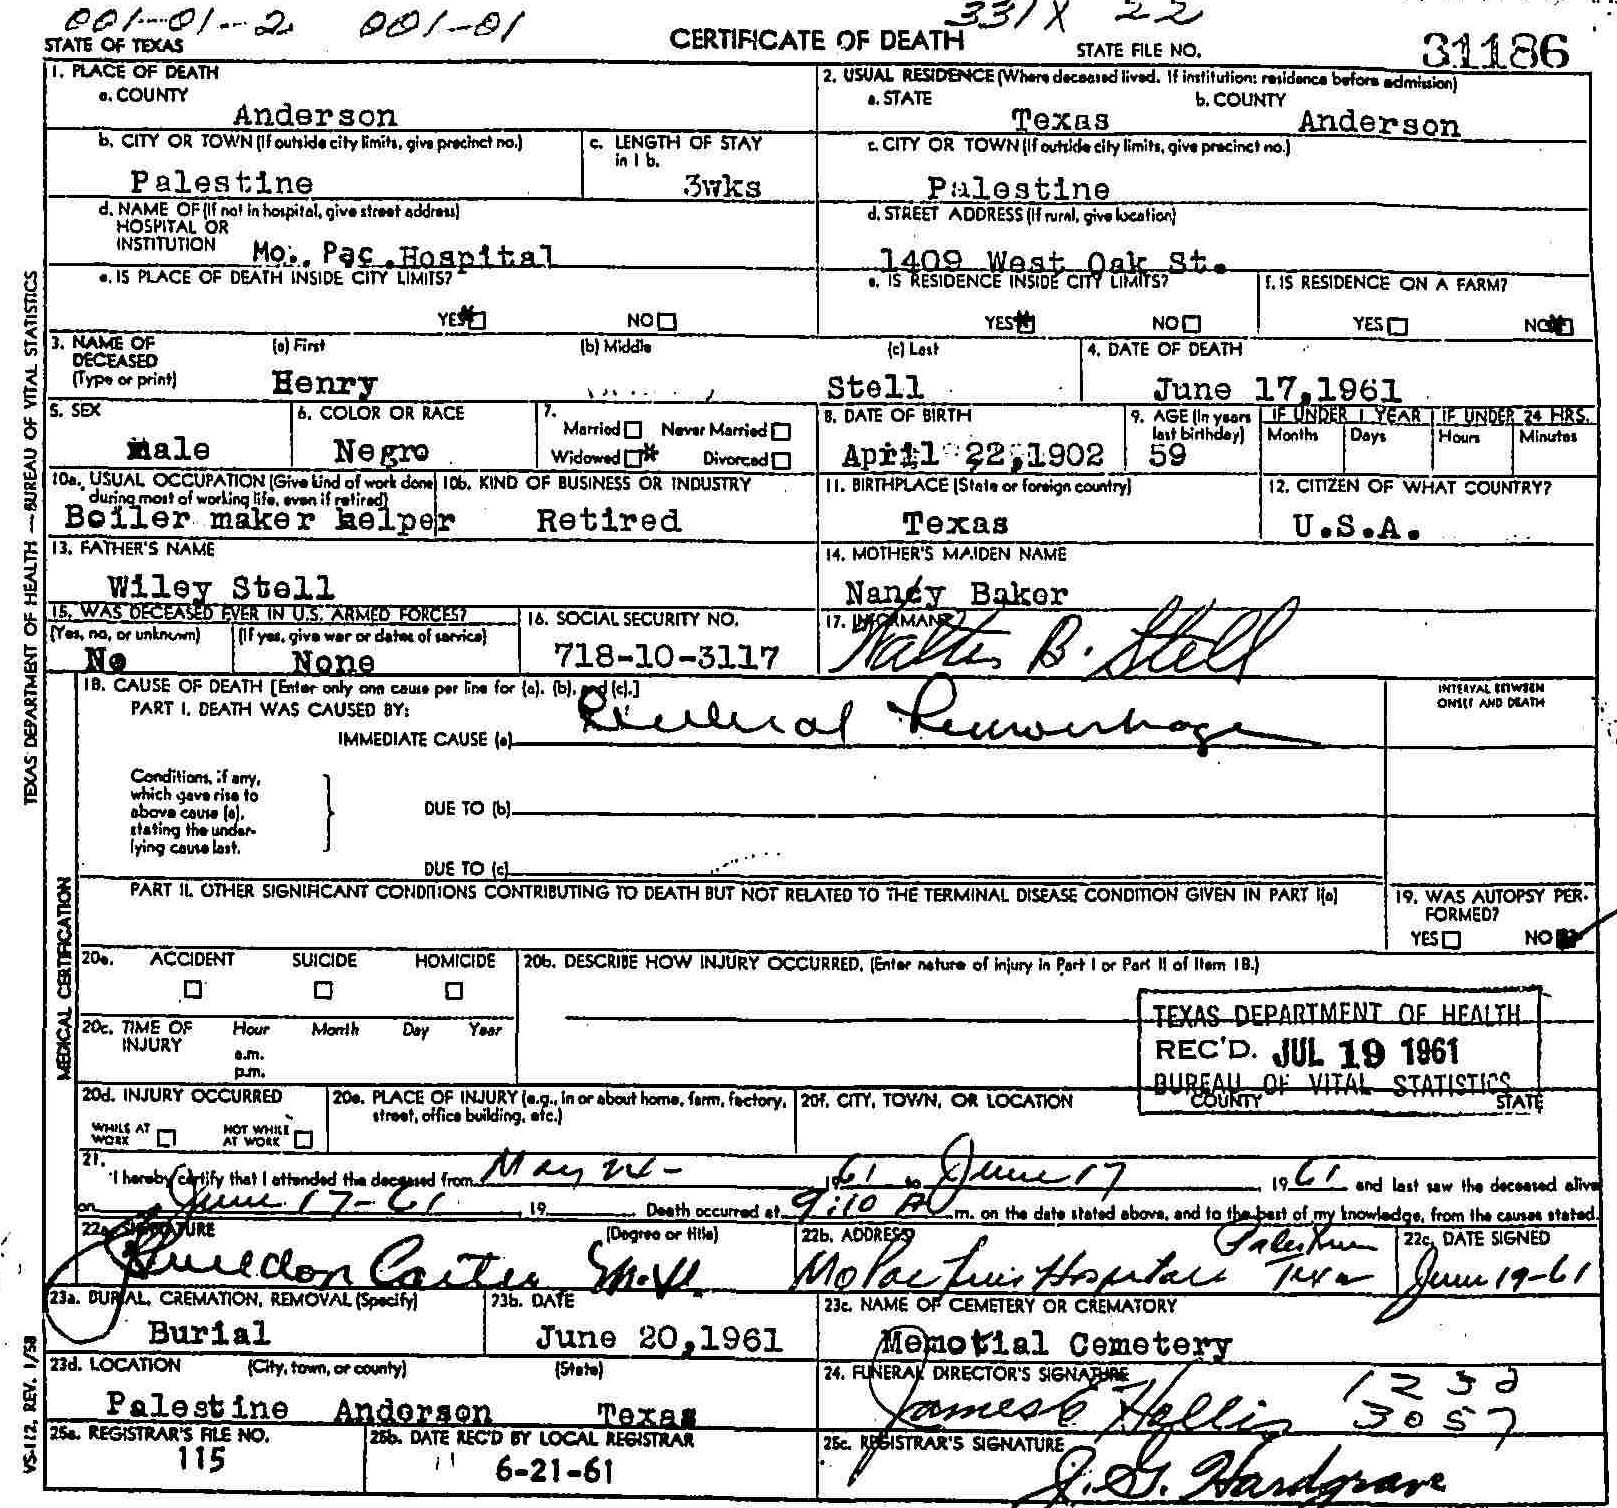 001-01-2 001-01 331X 22
STATE OF TEXAS CERTIFICATE OF DEATH STATE FILE NO. 31186
1. PLACE OF DEATH
a. COUNTY
Anderson
2. USUAL RESIDENCE (Where deceased lived. If institution: residence before admission)
a. STATE b. COUNTY
Texas Anderson
b. CITY OR TOWN (If outside city limits, give precinct no.)
Palestine
c. LENGTH OF STAY
in 1 b.
3wks
c. CITY OR TOWN (If outside city limits, give precinct no.)
Palestine
d. NAME OF (If not in hospital, give street address)
HOSPITAL OR
INSTITUTION Mo. Pac. Hospital
d. STREET ADDRESS (If rural, give location)
1409 West Oak St.
e. IS PLACE OF DEATH INSIDE CITY LIMITS?
YES NO
e. IS RESIDENCE INSIDE CITY LIMITS?
YES NO
f. IS RESIDENCE ON A FARM?
YES NO
3. NAME OF
DECEASED
(Type or print)
(a) First (b) Middle (c) Last
Henry Stell
4. DATE OF DEATH
June 17,1961
5. SEX
Male
6. COLOR OR RACE
Negro
7.
Married Never Married
Widowed Divorced
8. DATE OF BIRTH
April 22,1902
9. AGE (In years
last birthday)
59
IF UNDER 1 YEAR IF UNDER 24 HRS.
Months Days Hours Minutes
10a. USUAL OCCUPATION (Give kind of work done
during most of working life, even if retired)
Boiler maker helper
10b. KIND OF BUSINESS OR INDUSTRY
Retired
11. BIRTHPLACE (State or foreign country)
Texas
12. CITIZEN OF WHAT COUNTRY?
U.S.A.
13. FATHER'S NAME
Wiley Stell
14. MOTHER'S MAIDEN NAME
Nancy Baker
15. WAS DECEASED EVER IN U.S. ARMED FORCES?
(Yes, no, or unknown) (If yes, give war or dates of service)
No None
16. SOCIAL SECURITY NO.
718-10-3117
17. INFORMANT
Walter B. Stell
18. CAUSE OF DEATH [Enter only one cause per line for (a), (b), and (c).]
PART I. DEATH WAS CAUSED BY:
IMMEDIATE CAUSE (a) Cerebral Hemorrhage
INTERVAL BETWEEN
ONSET AND DEATH
Conditions, if any,
which gave rise to
above cause (a),
stating the under-
lying cause last.
DUE TO (b)
DUE TO (c)
PART II. OTHER SIGNIFICANT CONDITIONS CONTRIBUTING TO DEATH BUT NOT RELATED TO THE TERMINAL DISEASE CONDITION GIVEN IN PART I(a)
19. WAS AUTOPSY PER-
FORMED?
YES NO
20a. ACCIDENT SUICIDE HOMICIDE
20b. DESCRIBE HOW INJURY OCCURRED. (Enter nature of injury in Part I or Part II of Item 18.)
20c. TIME OF
INJURY
Hour Month Day Year
a.m.
p.m.
TEXAS DEPARTMENT OF HEALTH
REC'D. JUL 19 1961
BUREAU OF VITAL STATISTICS
20d. INJURY OCCURRED
WHILE AT
WORK
NOT WHILE
AT WORK
20e. PLACE OF INJURY (e.g., in or about home, farm, factory,
street, office building, etc.)
20f. CITY, TOWN, OR LOCATION COUNTY STATE
21.
I hereby certify that I attended the deceased from May 24- 1961 to June 17 1961 and last saw the deceased alive
on June 17-61, 19 Death occurred at 9:10 A m. on the date stated above, and to the best of my knowledge, from the causes stated.
22a. SIGNATURE (Degree or title)
Carter M.D.
22b. ADDRESS
MoPac Hospital Palestine Texas
22c. DATE SIGNED
June 19-61
23a. BURIAL, CREMATION, REMOVAL (Specify)
Burial
23b. DATE
June 20,1961
23c. NAME OF CEMETERY OR CREMATORY
Memotial Cemetery
23d. LOCATION (City, town, or county) (State)
Palestine Anderson Texas
24. FUNERAL DIRECTOR'S SIGNATURE
James C Hollis 1232
3057
25a. REGISTRAR'S FILE NO.
115
25b. DATE REC'D BY LOCAL REGISTRAR
6-21-61
25c. REGISTRAR'S SIGNATURE
J. G. Hardgrave
TEXAS DEPARTMENT OF HEALTH — BUREAU OF VITAL STATISTICS
MEDICAL CERTIFICATION
VS-112, REV. 1/58